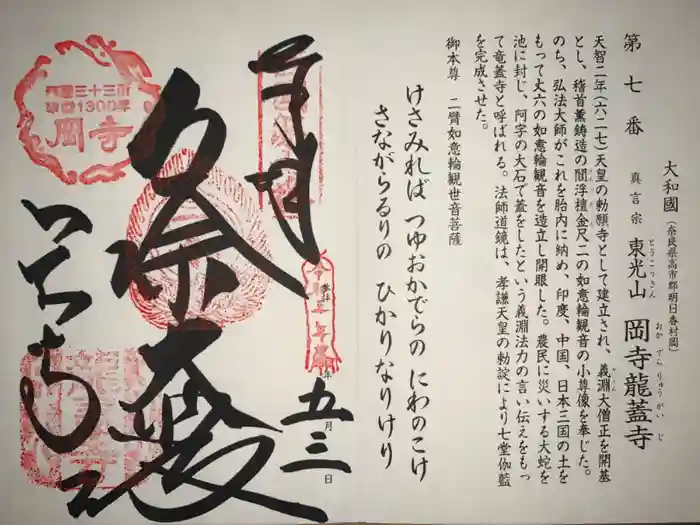 第七番
大和國（奈良県高市郡明日香村岡）
真言宗 東光山 岡寺龍蓋寺
とうこうさん
おかでらりゅうがいじ
天智二年（六二七）天皇の勅願寺として建立され、義淵大僧正を開基
とし、稽首薫鋳造の閻浮檀金尺二の如意輪観音の小尊像を奉じた。
のち、弘法大師がこれを胎内に納め、印度、中国、日本三国の土を
もって丈六の如意輪観音を造立し開眼した。農民に災いする大蛇を
池に封じ、阿字の大石で蓋をしたという義淵法力の言い伝えをもっ
て竜蓋寺と呼ばれる。法師道鏡は、孝謙天皇の勅諚により七堂伽藍
を完成させた。
御本尊 二臂如意輪観世音菩薩
けさみれば つゆおかでらの にわのこけ
さながらるりの ひかりなりけり
参拝
年
五月三日
三十三所
1300年
岡寺